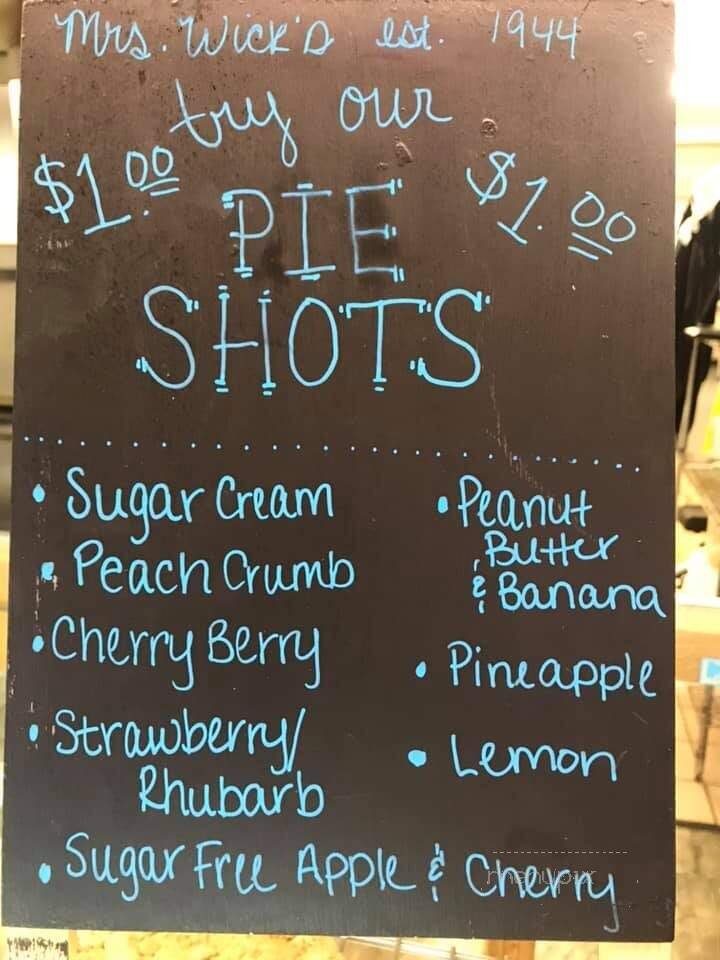 Mrs. Wick's est. 1944
try our
$1.00 $1.00
PIE
SHOTS
• Sugar Cream
• Peach Crumb
• Cherry Berry
• Strawberry/
Rhubarb
• Peanut
Butter
& Banana
• Pineapple
• Lemon
• Sugar Free Apple & Cherry
menupix